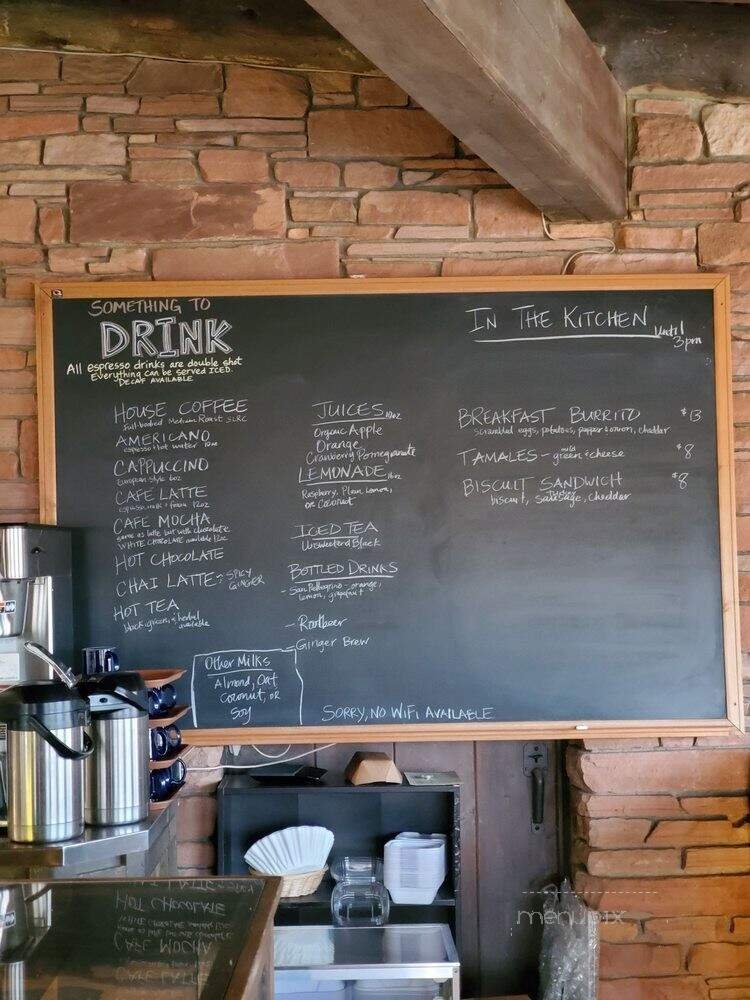 SOMETHING TO
DRINK
All espresso drinks are double shot
Everything can be served ICED.
DECAF AVAILABLE
HOUSE COFFEE
Full-bodied Medium Roast SLRC
AMERICANO
espresso + hot water 12oz
CAPPUCCINO
European Style 6oz
CAFE LATTE
espresso, milk + foam 12oz
CAFE MOCHA
same as latte but with chocolate
WHITE CHOCOLATE available 12oz
HOT CHOCOLATE
CHAI LATTE - SPICY
GINGER
HOT TEA
black, green, & herbal
available
Other Milks
Almond, Oat
Coconut, OR
Soy
JUICES
Organic Apple
Orange
Cranberry Pomegranate
LEMONADE 16oz
Raspberry, Plain Lemon,
OR Coconut
ICED TEA
Unsweetened Black
BOTTLED DRINKS
- San Pellegrino - orange,
lemon, grapefruit
- Rootbeer
- Ginger Brew
SORRY, NO WIFI AVAILABLE
IN THE KITCHEN until
3pm
BREAKFAST BURRITO $13
scrambled eggs, potatoes, pepper & onion, cheddar
TAMALES - mild green & cheese $8
BISCUIT SANDWICH $8
biscuit, sausage, cheddar
HOT CHOCOLATE
CAFE MOCHA
CAFE LATTE
menupix